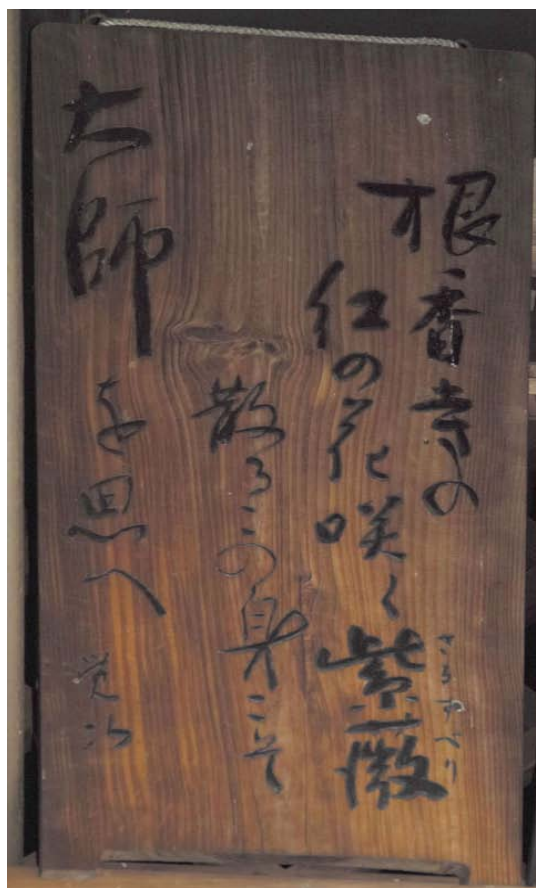 根香寺の
紅の花咲く紫薇
さるすべり
散るこの身こそ
大師を思へ
覚